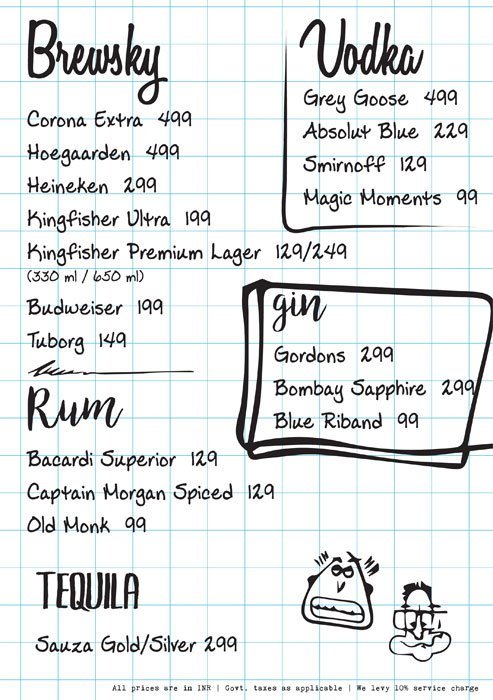 Brewsky
Corona Extra 499
Hoegaarden 499
Heineken 299
Kingfisher Ultra 199
Kingfisher Premium Lager 129/249
(330 ml / 650 ml)
Budweiser 199
Tuborg 149
Vodka
Grey Goose 499
Absolut Blue 229
Smirnoff 129
Magic Moments 99
gin
Gordons 299
Bombay Sapphire 299
Blue Riband 99
Rum
Bacardi Superior 129
Captain Morgan Spiced 129
Old Monk 99
TEQUILA
Sauza Gold/Silver 299
All prices are in INR | Govt. taxes as applicable | We levy 10% service charge